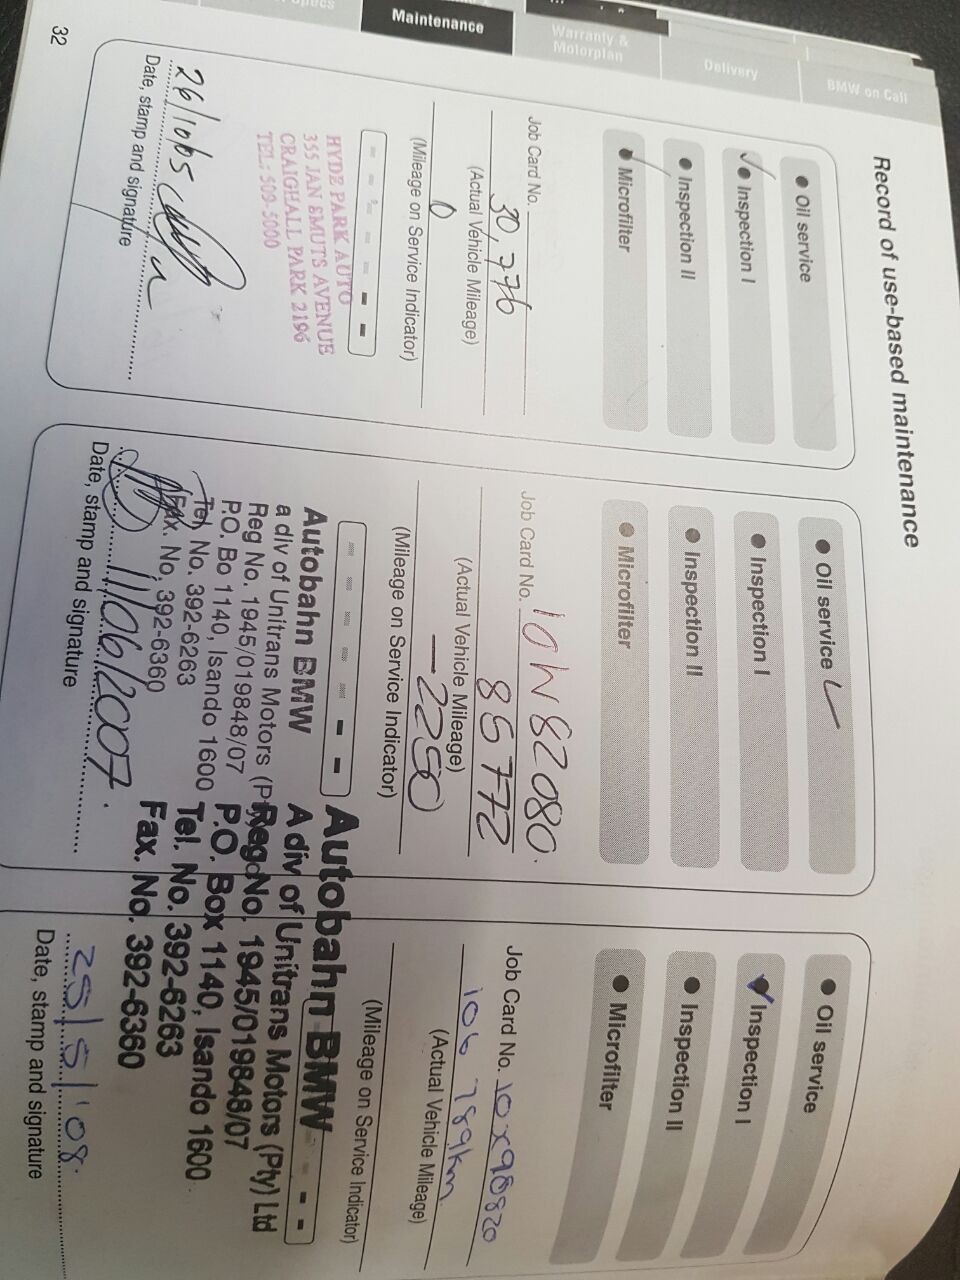 Maintenance
Warranty &
Motorplan
Delivery
BMW on Call
Record of use-based maintenance
Oil service
Inspection I
Inspection II
Microfilter
Job Card No.
30,776
(Actual Vehicle Mileage)
0
(Mileage on Service Indicator)
HYDE PARK AUTO
355 JAN SMUTS AVENUE
CRAIGHALL PARK 2196
TEL: 509-5000
26/10/05
Date, stamp and signature
32
Oil service
Inspection I
Inspection II
Microfilter
Job Card No. 10W82080.
85772
(Actual Vehicle Mileage)
-2250
(Mileage on Service Indicator)
Autobahn BMW
a div of Unitrans Motors
Reg No. 1945/019848/07
P.O. Bo 1140, Isando 1600
Tel, No. 392-6263
Fax. No, 392-6360
11/06/2007.
Date, stamp and signature
Oil service
Inspection I
Inspection II
Microfilter
Job Card No. 10X98820
106 789km
(Actual Vehicle Mileage)
(Mileage on Service Indicator)
Autobahn BMW
A div of Unitrans Motors (Pty) Ltd
Reg No, 1945/019848/07
P.O. Box 1140, Isando 1600
Tel. No. 392-6263
Fax. No. 392-6360
25/5/'08.
Date, stamp and signature